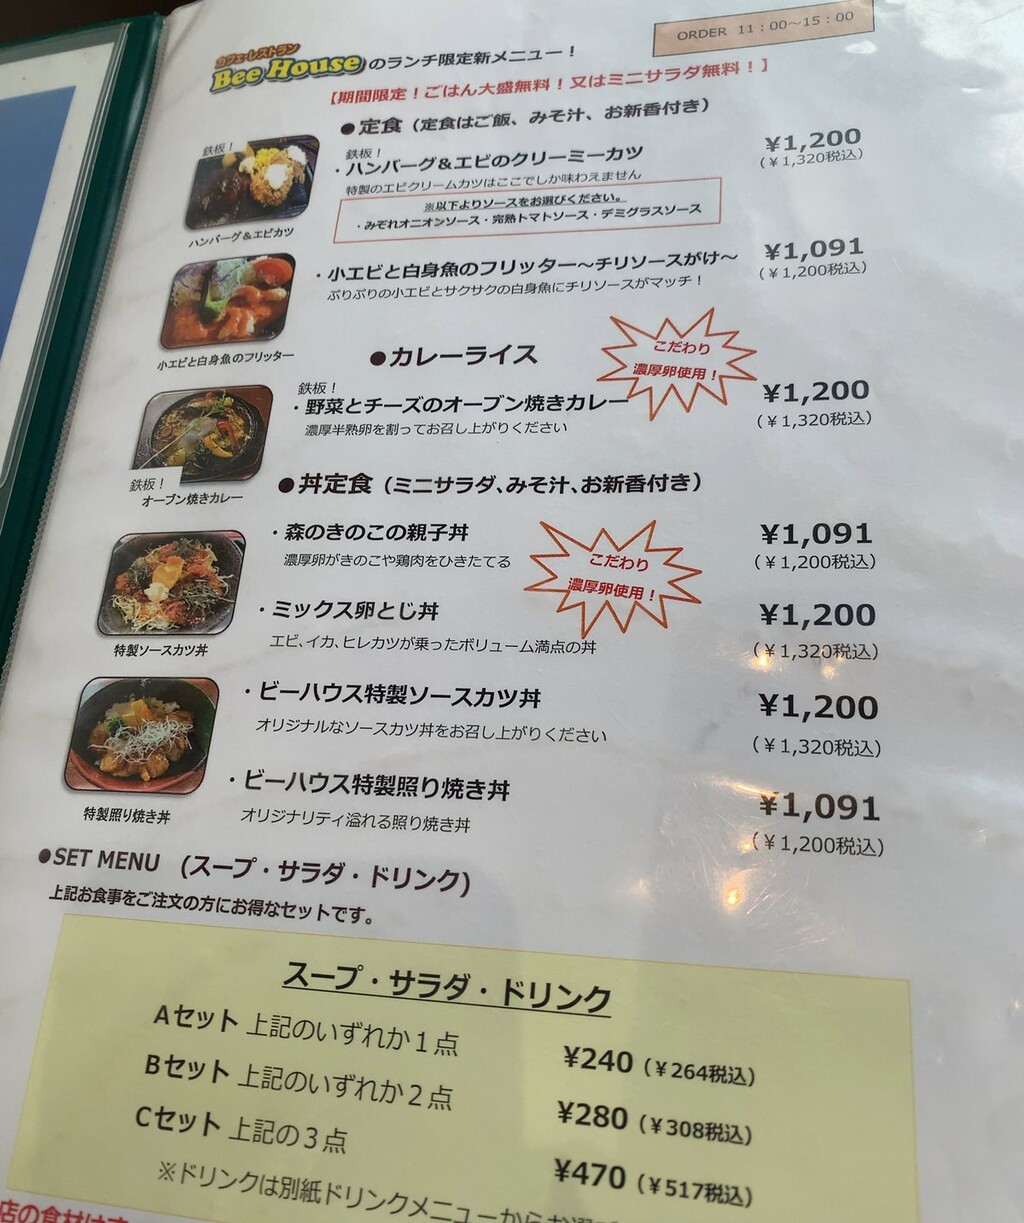 ORDER 11：00～15：00
カフェ・レストラン
Bee House のランチ限定新メニュー！
【期間限定！ごはん大盛無料！又はミニサラダ無料！】
●定食（定食はご飯、みそ汁、お新香付き）
鉄板！
ハンバーグ＆エビカツ
鉄板！
・ハンバーグ＆エビのクリーミーカツ
¥1,200
（¥1,320税込）
特製のエビクリームカツはここでしか味わえません
※以下よりソースをお選びください。
・みぞれオニオンソース・完熟トマトソース・デミグラスソース
・小エビと白身魚のフリッター～チリソースがけ～
¥1,091
（¥1,200税込）
ぷりぷりの小エビとサクサクの白身魚にチリソースがマッチ！
小エビと白身魚のフリッター
●カレーライス
こだわり
濃厚卵使用！
鉄板！
・野菜とチーズのオーブン焼きカレー
¥1,200
（¥1,320税込）
濃厚半熟卵を割ってお召し上がりください
鉄板！
オーブン焼きカレー
●丼定食（ミニサラダ、みそ汁、お新香付き）
・森のきのこの親子丼
¥1,091
（¥1,200税込）
濃厚卵がきのこや鶏肉をひきたてる
こだわり
濃厚卵使用！
・ミックス卵とじ丼
¥1,200
（¥1,320税込）
エビ、イカ、ヒレカツが乗ったボリューム満点の丼
特製ソースカツ丼
・ビーハウス特製ソースカツ丼
¥1,200
（¥1,320税込）
オリジナルなソースカツ丼をお召し上がりください
・ビーハウス特製照り焼き丼
¥1,091
（¥1,200税込）
オリジナリティ溢れる照り焼き丼
特製照り焼き丼
●SET MENU （スープ・サラダ・ドリンク）
上記お食事をご注文の方にお得なセットです。
スープ・サラダ・ドリンク
Aセット 上記のいずれか１点 ¥240（¥264税込）
Bセット 上記のいずれか２点 ¥280（¥308税込）
Cセット 上記の３点 ¥470（¥517税込）
※ドリンクは別紙ドリンクメニューからお選
店の食材は